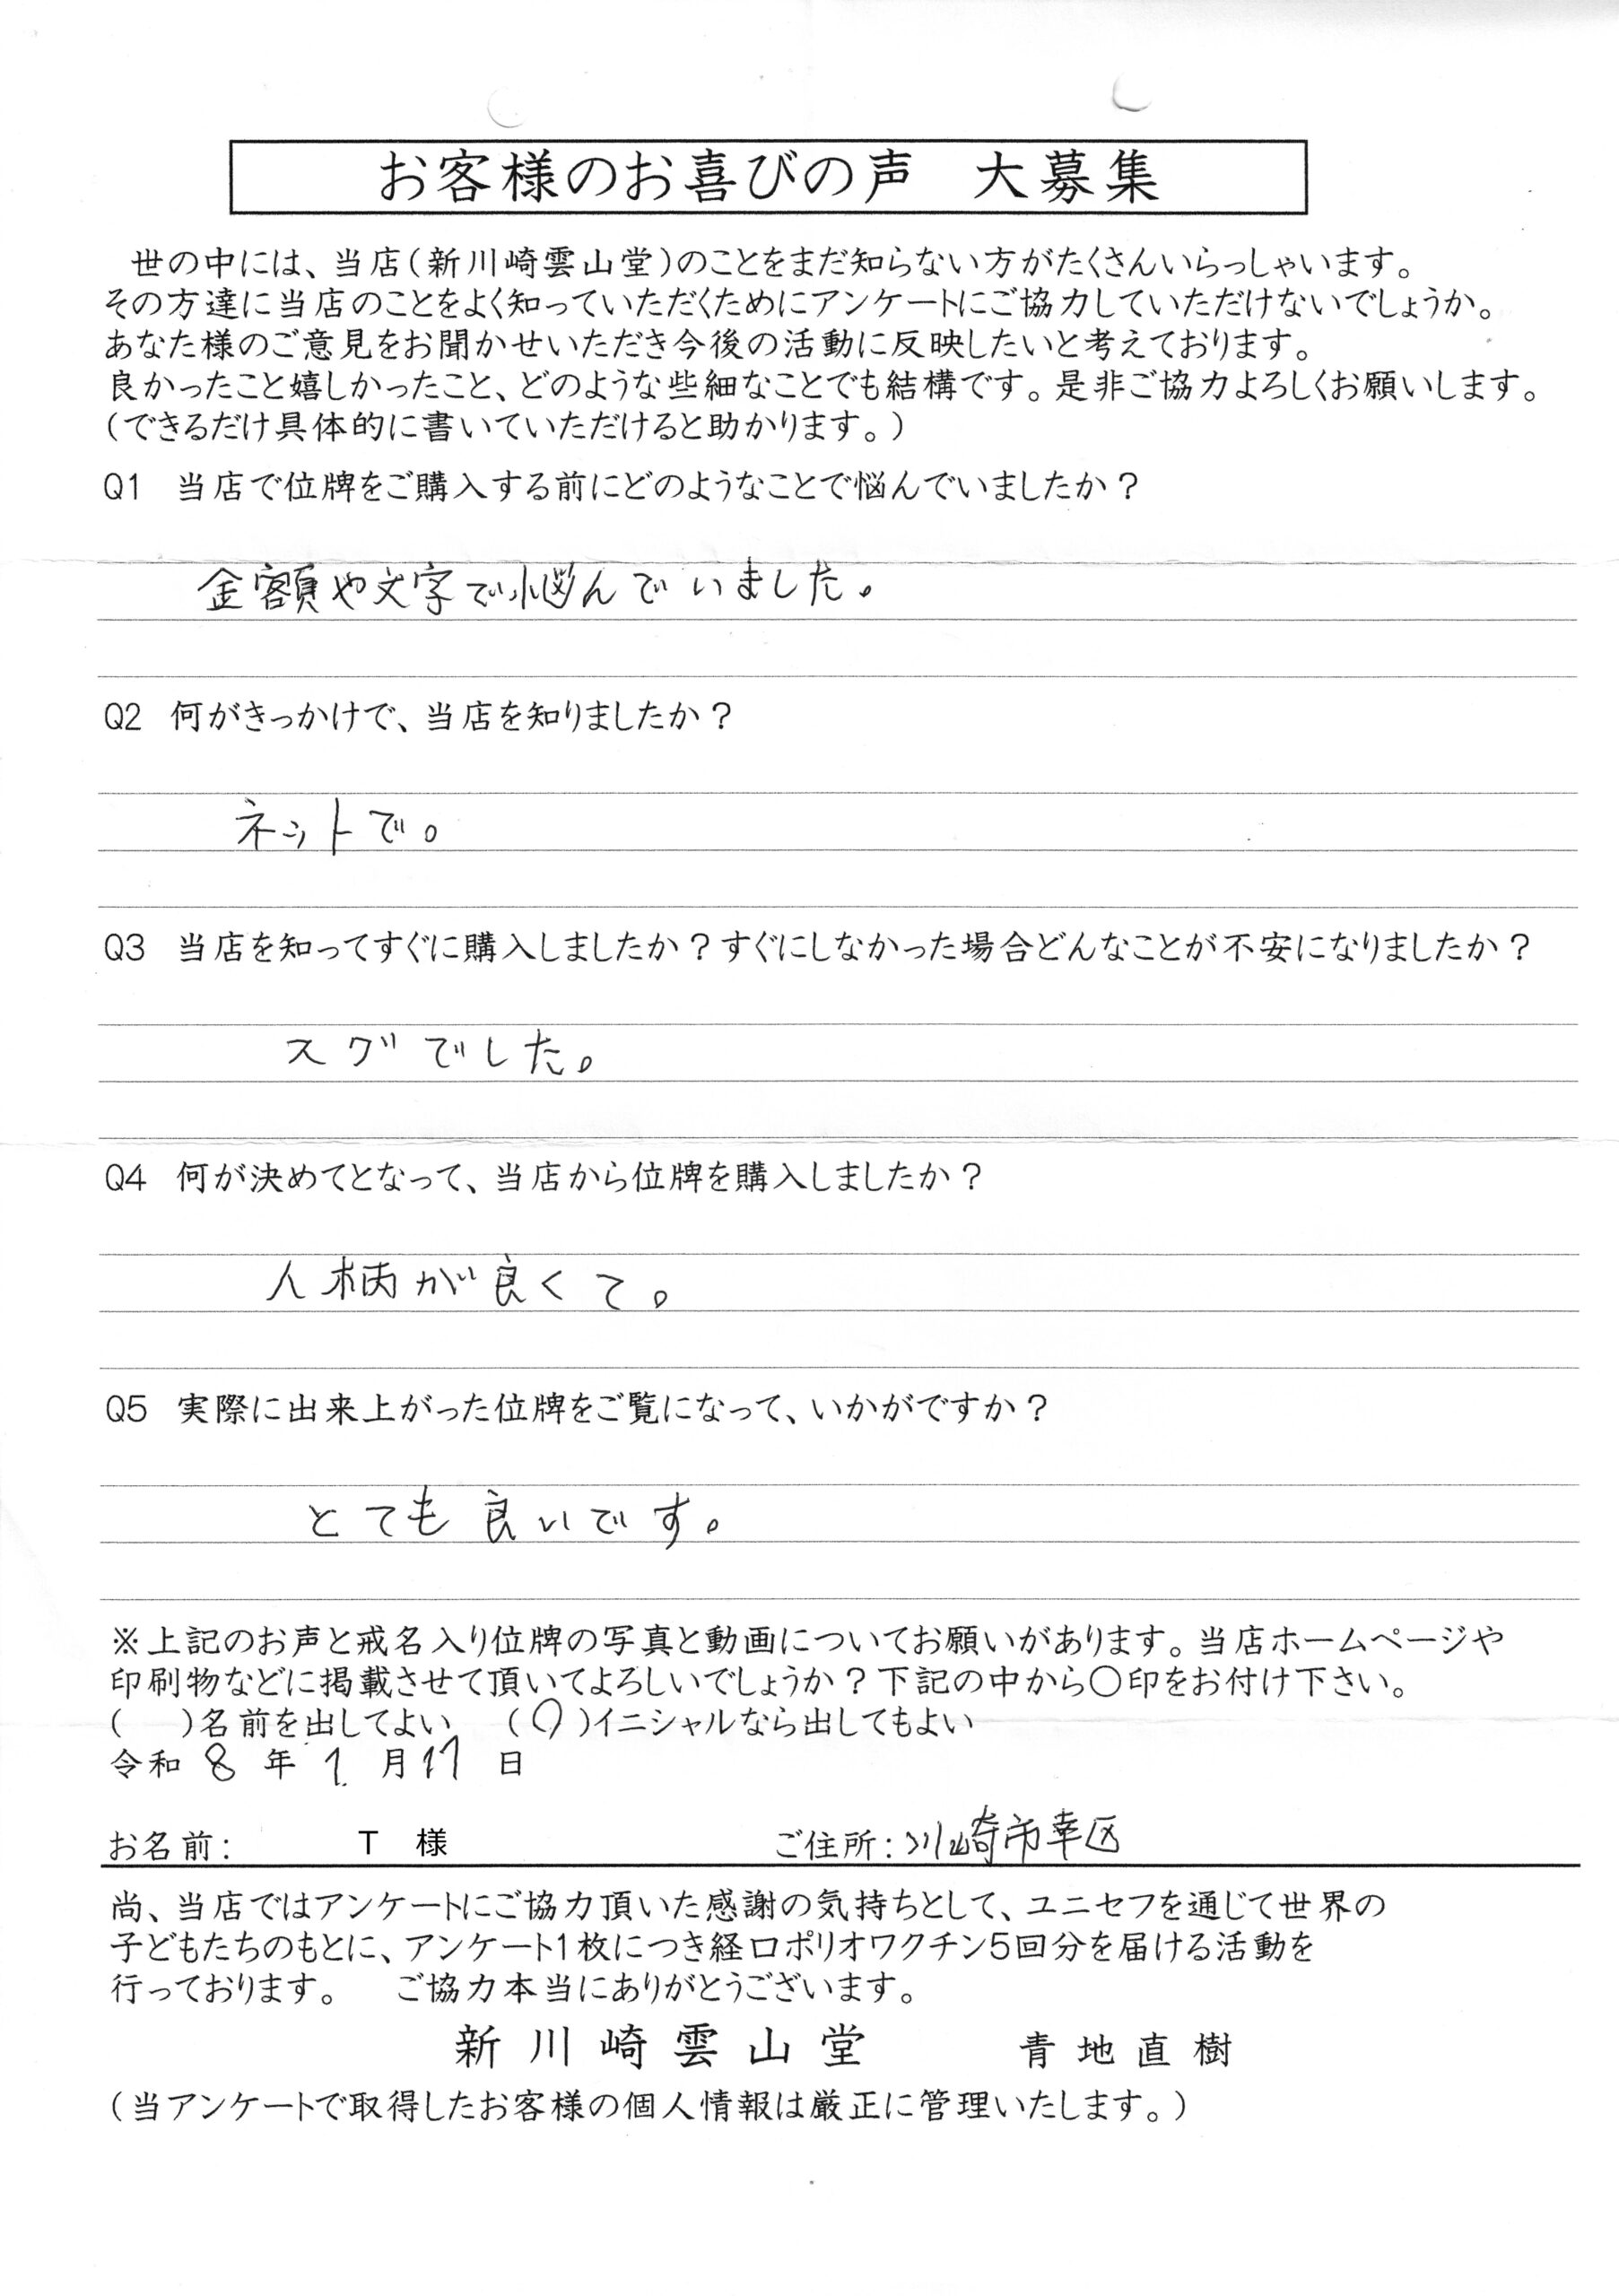 お客様のお喜びの声　大募集
世の中には、当店（新川崎雲山堂）のことをまだ知らない方がたくさんいらっしゃいます。
その方達に当店のことをよく知っていただくためにアンケートにご協力していただけないでしょうか。
あなた様のご意見をお聞かせいただき今後の活動に反映したいと考えております。
良かったこと嬉しかったこと、どのような些細なことでも結構です。是非ご協力よろしくお願いします。
（できるだけ具体的に書いていただけると助かります。）
Q1　当店で位牌をご購入する前にどのようなことで悩んでいましたか？
金額や文字で悩んでいました。
Q2　何がきっかけで、当店を知りましたか？
ネットで。
Q3　当店を知ってすぐに購入しましたか？すぐにしなかった場合どんなことが不安になりましたか？
スグでした。
Q4　何が決めてとなって、当店から位牌を購入しましたか？
人柄が良くて。
Q5　実際に出来上がった位牌をご覧になって、いかがですか？
とても良いです。
※上記のお声と戒名入り位牌の写真と動画についてお願いがあります。当店ホームページや
印刷物などに掲載させて頂いてよろしいでしょうか？下記の中から〇印をお付け下さい。
（　　）名前を出してよい　（〇）イニシャルなら出してもよい
令和 8 年 1. 月 17 日
お名前：　T　様　ご住所：川崎市幸区
尚、当店ではアンケートにご協力頂いた感謝の気持ちとして、ユニセフを通じて世界の
子どもたちのもとに、アンケート1枚につき経口ポリオワクチン5回分を届ける活動を
行っております。　ご協力本当にありがとうございます。
新川崎雲山堂　青地直樹
（当アンケートで取得したお客様の個人情報は厳正に管理いたします。）